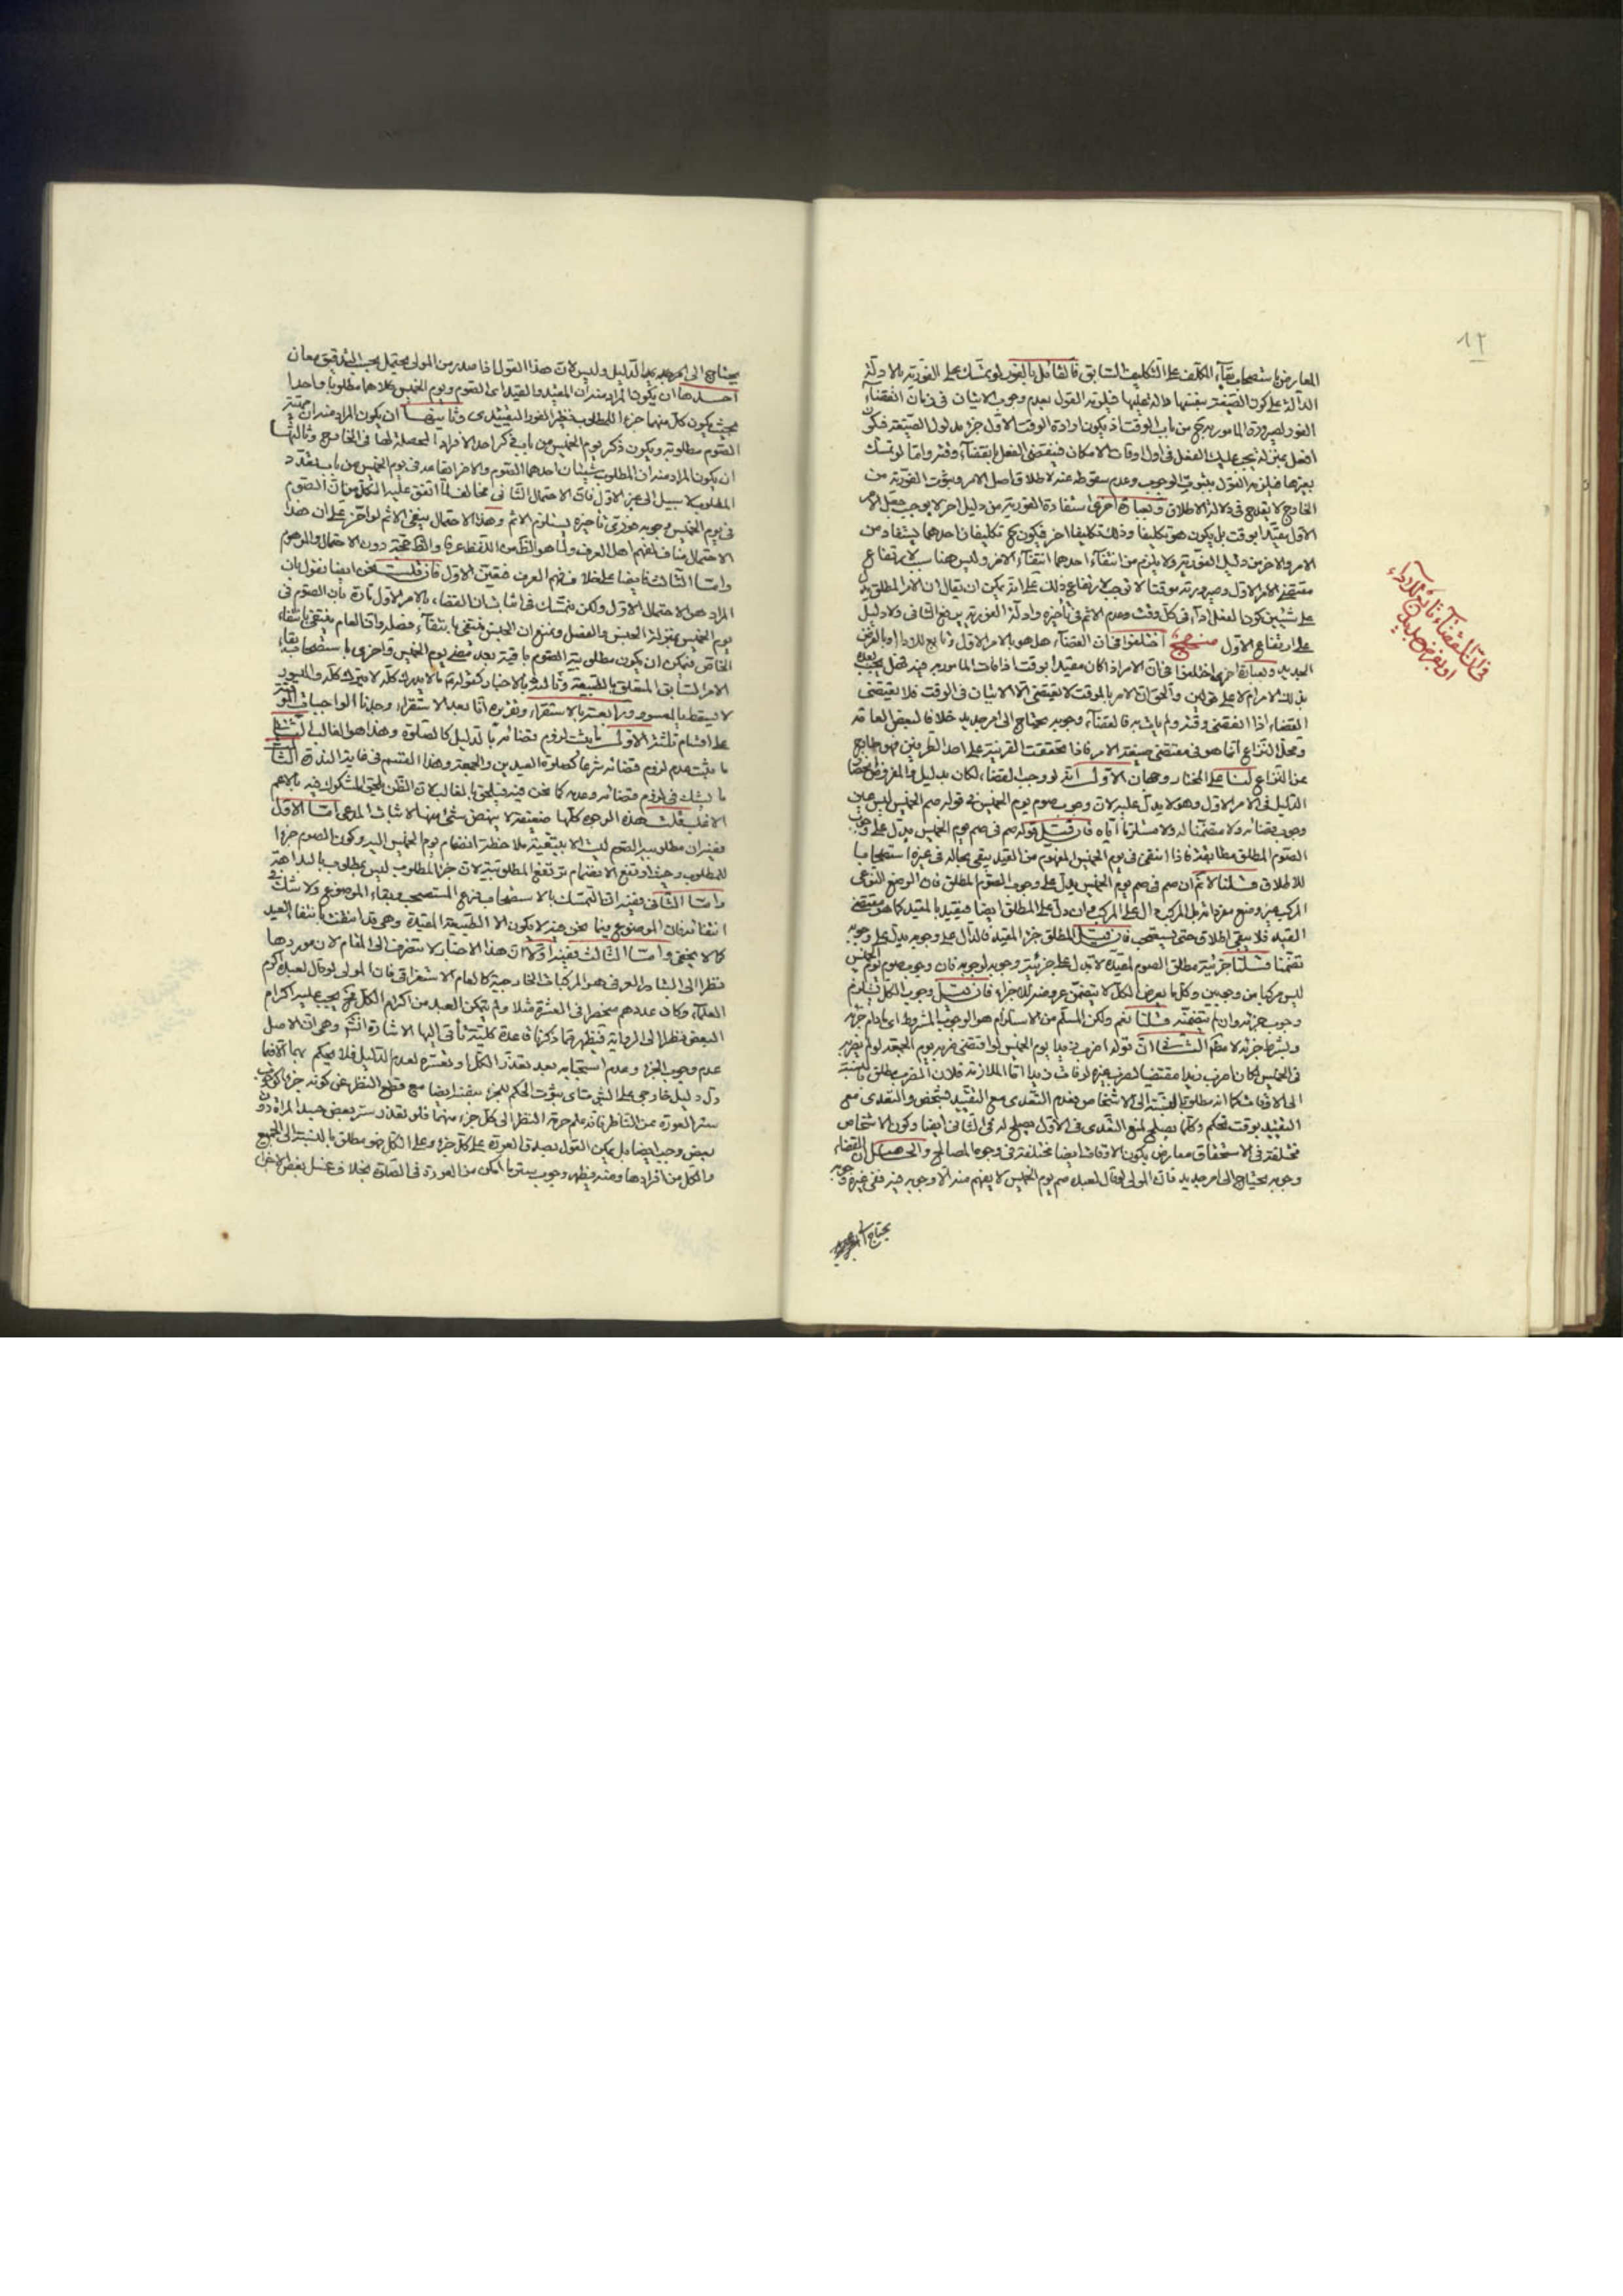 ١٢
في ان القضاء تابع للاداء
او بفرض جديد
المعارض باستصحاب بقاء التكليف على التكليف السابق فالقائل بالفور لو تمسك على الفورية بالادلة
الدالة على كون الصيغة بنفسها دالة عليها فيلزمه القول بعدم وجوب الاتيان في زمان انقضاء
الفور لصيرورة المامور به ح من باب الوقت اذ يكون ارادة الوقت الاول جزء مدلول الصيغة فيكون
افعل بمنزلة يجب عليك الفعل في اول اوقات الامكان فيقتضى الفعل بانقضاء وقته واما لو تمسك
بغيرها فيلزمه القول بثبوت الوجوب وعدم سقوطه عنه لاطلاق اصل الامر وثبوت الفورية من
الخارج لا يقدح في دلالة الاطلاق وبعبارة اخرى استفادة الفورية من دليل اخر لا يوجب جعل الامر
الاول مقيدا بوقت بل يكون هو تكليفا وذلك تكليفا اخر فيكون ح تكليفان احدهما يستفاد من
الامر والاخر من دليل الفورية ولا يلزم من انتفاء احدهما انتفاء الاخر وليس هنا سبب لارتفاع
مقتضى الامر الاول وصيرورته موقتا لا توجب لارتفاع ذلك على انه يمكن ان يقال ان الامر المطلق يدل
على شيئين كون الفعل اداء في كل وقت وعدم الاثم في تاخيره وادلة الفورية يرفع الثاني ولا دليل
على ارتفاع الاول منهج اختلفوا في ان القضاء هل هو بالامر الاول وتابع للاداء او بالفرض
الجديد وبعبارة اخرى اختلفوا في ان الامر اذا كان مقيدا بوقت اذا فات المامور به فيه فهل يجب بعده
بذلك الامر ام لا على قولين والحق ان الامر بالموقت لا يقتضى الا الاتيان في الوقت فلا يقتضى
القضاء اذا انقضى وقته ولم يات به فالقضاء وجوبه يحتاج الى امر جديد خلافا لبعض العامة
ومحل النزاع انما هو في مقتضى صيغة الامر فاذا تحققت القرينة على احد الطرفين فهو خارج
عن النزاع لنا على المختار وجهان الاول انه لو وجب القضاء لكان بدليل والمفروض انحصار
الدليل في الامر الاول وهو لا يدل عليه لان وجوب صوم يوم الخميس في قوله صم الخميس ليس عين
وجوب قضائه ولا متضمنا له ولا مستلزما اياه فان قيل قوله صم في صم يوم الخميس يدل على وجوب
الصوم المطلق مطابقة فاذا انتفى في يوم الخميس المفهوم من القيد يبقى بحاله في غيره استصحابا
للاطلاق قلنا لا نم ان صم في صم يوم الخميس يدل على وجوب الصوم المطلق فان الوضع النوعى
القيد فلا يبقى اطلاق حتى يستصحب فان قيل المطلق جزء المقيد فالدال على وجوبه يدل على وجوبه
تضمنا قلنا جزئية مطلق الصوم لمقيده لا تدل على جزئية وجوبه لوجوبه فان وجوب صوم يوم الخميس
ليس مركبا من وجوبين وكل ما يعرض للكل لا يتضمن عروضه للاجزاء فان قيل وجوب الكل يستلزم
وجوب جزئه وان لم يتضمنه قلنا نعم ولكن المسلم من الاستلزام هو الوجوب المشروط اى مادام جزئه
وبشرط جزئه لا مطلقا الثاني ان قوله اضرب زيدا يوم الخميس لو اقتضى ضربه يوم الجمعة لو لم يضربه
في الخميس لكان اضرب زيدا مقتضيا لضرب غيره لو فات زيد اما الملازمة فلان الضرب مطلق بالنسبة
الى الاوقات كما انه مطلق بالنسبة الى الاشخاص فعدم التعدى مع التقييد بشخص والتعدى مع
التقييد بوقت تحكم وكلما يصلح لمنع التعدى في الاول يصلح له في الثاني ايضا وكون الاشخاص
مختلفة في الاستحقاق معارض بكون الاوقات ايضا مختلفة في وجوه المصالح والحاصل ان القضاء
وجوبه يحتاج الى امر جديد فان المولى لو قال لعبده صم يوم الخميس لا يفهم منه الا وجوبه فيه ففي غيره وجوبه
يحتاج الى امر جديد
يحتاج الى امر جديد بعد الدليل وليس لان هذا القول اذا صدر من المولى يحتمل بحسب التدقيق معان
احدها ان يكون المراد منه ان المقيد والقيد اى الصوم ويوم الخميس كلاهما مطلوبا واحدا
بحيث يكون كل منهما جزء المطلوب نظير الفور التقييدى وثانيها ان يكون المراد منه ان طبيعة
الصوم مطلوبة ويكون ذكر يوم الخميس من باب ذكر احد الافراد المحصلة لها في الخارج وثالثها
ان يكون المراد منه ان المطلوب شيئان احدهما الصوم والاخر ايقاعه في يوم الخميس من باب تعدد
المطلوب لا سبيل الى غير الاول فان الاحتمال الثاني مخالف لما اتفق عليه الكل من ان الصوم
في يوم الخميس وجوبه فورى تاخيره يستلزم الاثم وهذا الاحتمال ينفى الاثم لو اخر على ان هذا
الاحتمال مناف لفهم اهل العرف ولما هو الظاهر من اللفظ عرفا والظاهر حجة دون الاحتمال والموهوم
واما الثالث فايضا على خلاف فهم العرف فتعين الاول فان قلت نحن ايضا نقول بان
المراد هو الاحتمال الاول ولكن نتمسك في اثبات القضاء بالامر الاول تارة بان الصوم في
يوم الخميس بمنزلة الجنس والفصل ونمنع ان الجنس ينتفى بانتفاء فصله وان العام ينتفى بانتفاء
الخاص فيمكن ان يكون مطلوبية الصوم باقية بعد مضى يوم الخميس واخرى باستصحاب بقاء
الامر السابق المتعلق بالطبيعة وثالثة بالاخبار كقولهم ما لا يدرك كله لا يترك كله والميسور
لا يسقط بالمعسور ورابعة بالاستقراء وتقريره انا بعد الاستقراء وجدنا الواجبات الموقتة
على اقسام ثلثة الاول ما يثبت لزوم قضائه بالدليل كالصلوة وهذا هو الغالب الثاني
ما يثبت عدم لزوم قضائه شرعا كصلوة العيدين والجمعة وهذا القسم في غاية الندرة الثالث
ما يشك في لزوم قضائه وعدمه كما نحن فيه فيلحق بالغالب لان الظن يلحق المشكوك فيه بالاعم
الاغلب قلت هذه الوجوه كلها ضعيفة لا ينهض شئ منها لاثبات المدعى اما الاول
ففيه ان مطلوبية الصوم ليست الا بتبعية ملاحظة انضمام يوم الخميس اليه وكون الصوم جزءا
للمطلوب وحيث ارتفع الانضمام ترتفع المطلوبية لان جزء المطلوب ليس بمطلوب بالبداهة
واما الثاني ففيه ان التمسك بالاستصحاب فرع المستصحب وبقاء الموضوع ولا شك في
انتفائه فان الموضوع فيما نحن فيه لا يكون الا الطبيعة المقيدة وهي قد انتفت بانتفاء القيد
كما لا يخفى واما الثالث ففيه اولا ان هذا الاخبار لا تنصرف الى المقام لان موردها
نظرا الى التبادر العرفي هو المركبات الخارجية كالعام الاستغراقي فان المولى لو قال لعبده اكرم
العلماء وكان عددهم منحصرا في العشرة مثلا ولم يتمكن العبد من اكرام الكل فح يجب عليه اكرام
البعض نظرا الى الرواية فيظهر مما ذكرنا قاعدة كلية تأتى اليها الاشارة انشاء الله وهي ان الاصل
عدم وجوب الجزء وعدم استحبابه بعد تعذر الكل او تعسره لعدم الدليل فلا يحكم بهما الا فيما
دل دليل خارجي على الشئ مثاى بثبوت الحكم للجزء بنفسه ايضا مع قطع النظر عن كونه جزءا كوجوب
ستر العورة عن الناظر فانه علم حرمة النظر الى كل جزء منها فلو تعذر ستر بعض جسد المراة دون
بعض وجب ايضا بل يمكن القول بصدق العورة على كل جزء وعلى الكل فهو مطلق بالنسبة الى الجميع
والكل من افرادها ومنه يظهر وجوب ستر ما امكن من العورة في الصلوة بخلاف غسل بعض الاجزاء